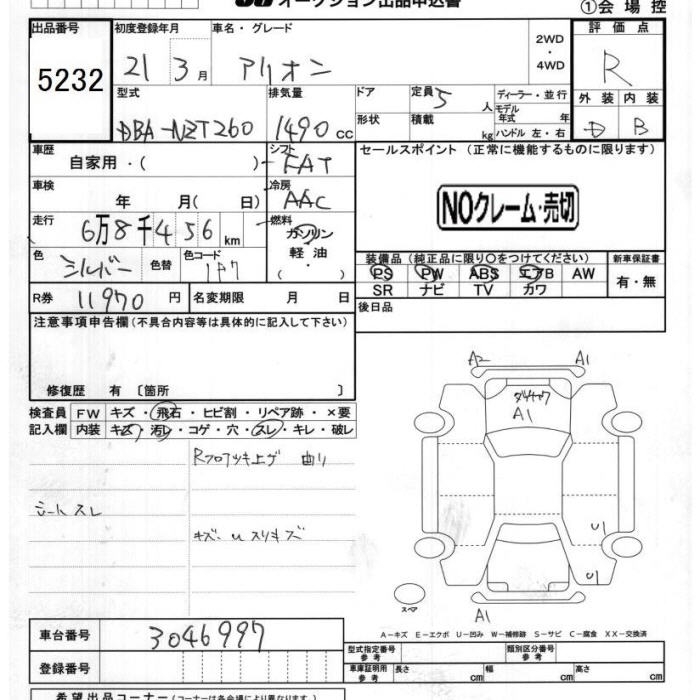 オークション出品申込書
①会場控
出品番号 初度登録年月 車名・グレード 評価点
5232 21 3月 アリオン 2WD・4WD R
型式 排気量 ドア 定員 5人 ディーラー・並行 外装 内装
DBA-NZT260 1490cc 形状 積載 kg モデル年式 年 ハンドル 左・右 D B
車歴 自家用・( ) シフト FAT セールスポイント (正常に機能するものに限ります)
車検 年 月( 日) 冷房 AAC
NOクレーム・売切
走行 6万8千456km 燃料 ガソリン
軽油
( ・ )
装備品 (純正品に限り○をつけてください) 新車保証書
色 シルバー 色替 色コード 1F7
PS PW ABS エアB AW 有・無
SR ナビ TV カワ
R券 11970円 名変期限 月 日 後日品
注意事項申告欄(不具合内容等は具体的に記入して下さい)
修復歴 有 〔箇所 〕
検査員 FW キズ・飛石・ヒビ割・リペア跡・×要
記入欄 内装 キズ・汚レ・コゲ・穴・スレ・キレ・破レ
Rフロアツキ上ゲ 曲リ
シートスレ
キズ・Uスリキズ
A2 A1
A1
U1
U1
スペア
A1
A−キズ E−エクボ U−凹み W−補修跡 S−サビ C−腐食 XX−交換済
車台番号 3046997
型式指定番号 参考 類別区分番号 参考
登録番号 車庫証明用 参考 長さ cm 幅 cm 高さ cm
希望出品コーナー(コーナーは各会場により異なります)